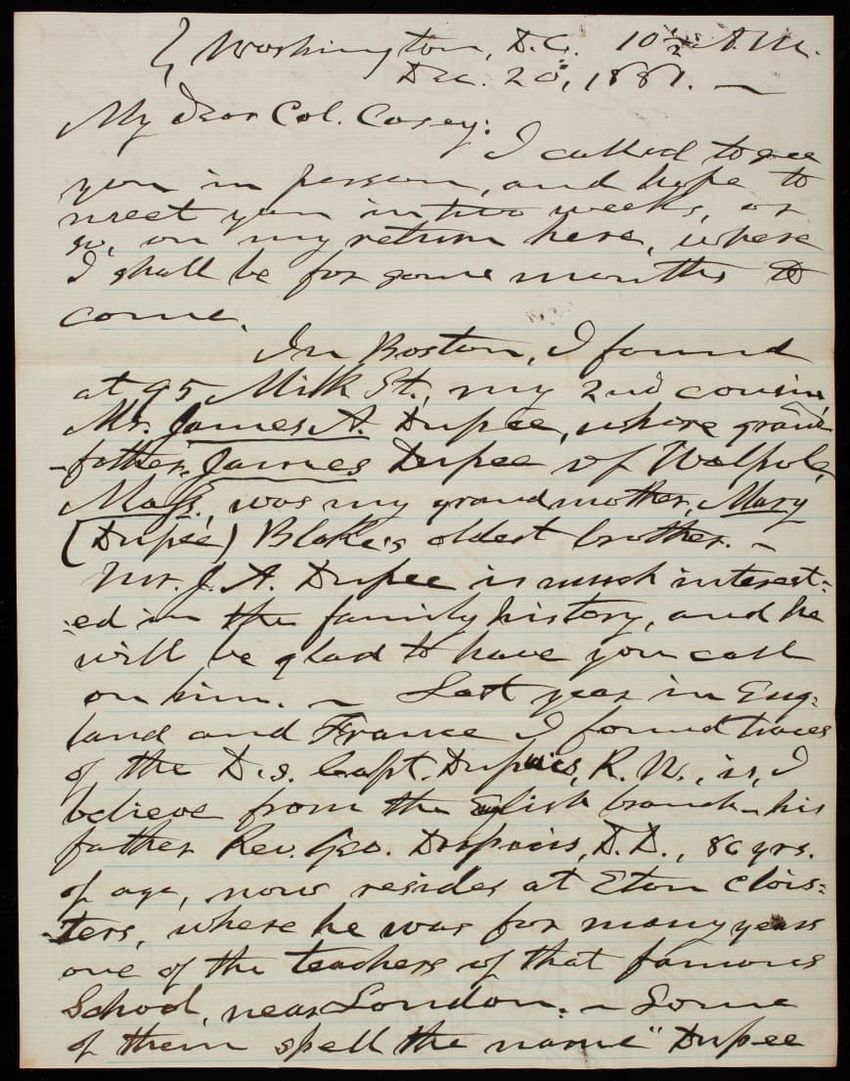 Washington, D.C. 10 1/2 A.M.
Dec. 20, 1881. —
My dear Col. Casey:
I called to see
you in person, and hope to
meet you in two weeks, or
so, on my return here, where
I shall be for some months to
come.
In Boston, I found
at 95 Milk St., my 2nd cousin,
Mr. James A. Dupee, whose grand
-father, James Dupee of Walpole,
Mass., was my grandmother, Mary
(Dupee) Blake's oldest brother. —
Mr. J. A. Dupee is much interest-
:ed in the family history, and he
will be glad to have you call
on him. — Last year in Eng:
land and France I found traces
of the D.s. Capt. Dupuis, R. N., is, I
believe from the English branch — his
father Rev. Geo. Dupuis, D.D., 86 yrs.
of age, now resides at Eton Clois:
-ters, where he was for many years
one of the teachers of that famous
School, near London. — Some
of them spell the name "Dupee